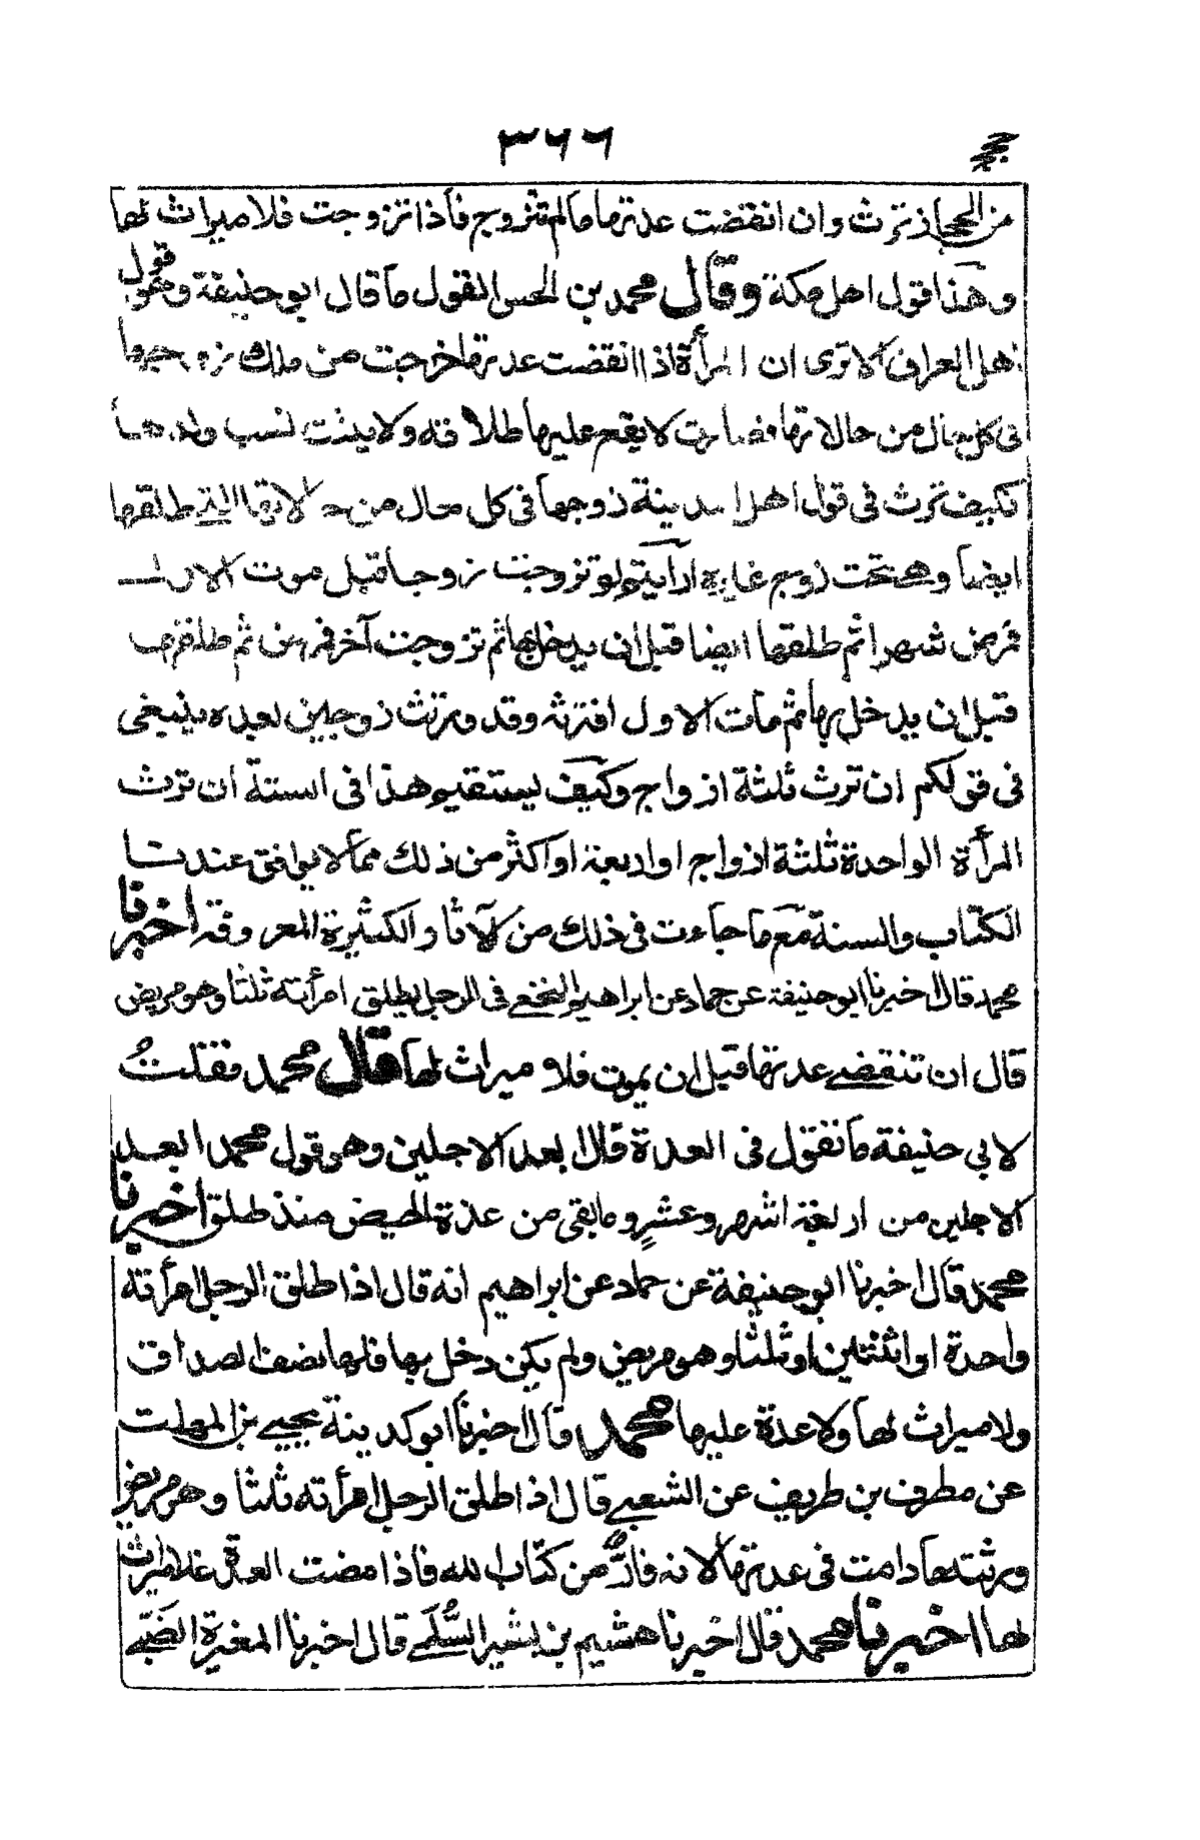 ٣٦٦
من الحجاز ترث وان انقضت عدتها ما لم تتزوج فاذا تزوجت فلا ميراث لها
وهذا قول اهل مكة وقال محمد بن الحسن القول ما قال ابو حنيفة وهو قول
اهل العراق الا ترى ان المرأة اذا انقضت عدتها خرجت من ملك زوجها
فى كل حال من حالاتها فصارت لا يقع عليها طلاقه ولا يثبت نسب ولدها
فكيف ترث فى قول اهل المدينة زوجها فى كل حال من حالاتها التى طلقها
ايضا وهى تحت زوج غيره ارأيتم لو تزوجت زوجا قبل موت الاول
فمرض شهرا ثم طلقها ايضا قبل ان يدخل بها ثم تزوجت آخر فمرض ثم طلقها
قبل ان يدخل بها ثم مات الاول افترثه وقد ورثت زوجين بعده ينبغى
فى قولكم ان ترث ثلثة ازواج وكيف يستقيم هذا فى السنة ان ترث
المرأة الواحدة ثلثة ازواج او اربعة او اكثر من ذلك مما لا يوافق عندنا
الكتاب والسنة مع ما جاءت فى ذلك من الآثار الكثيرة المعروفة اخبرنا
محمد قال اخبرنا ابو حنيفة عن حماد عن ابراهيم النخعى فى الرجل يطلق امرأته ثلثا وهو مريض
قال ان تنقضى عدتها قبل ان يموت فلا ميراث لها قال محمد فقلتُ
لابي حنيفة ما تقول فى العدة قال ابعد الاجلين وهو قول محمد ابعد
الاجلين من اربعة اشهر وعشرٍ وما بقى من عدة الحيض منذ طلق اخبرنا
محمد قال اخبرنا ابو حنيفة عن حماد عن ابراهيم انه قال اذا طلق الرجل امرأته
واحدة او اثنتين او ثلثا وهو مريض ولم يكن دخل بها فلها نصف الصداق
ولا ميراث لها ولا عدة عليها محمد قال اخبرنا ابو كدينة يحيى بن المهلب
عن مطرف بن طريف عن الشعبى قال اذا طلق الرجل امرأته ثلثا وهو مريض
ورثته ما دامت فى عدتها لانه فارٌّ من كتاب الله فاذا مضت العدة فلا ميراث
لها اخبرنا محمد قال اخبرنا هشيم بن بشير السُّلَمى قال اخبرنا المغيرة الضَبّى